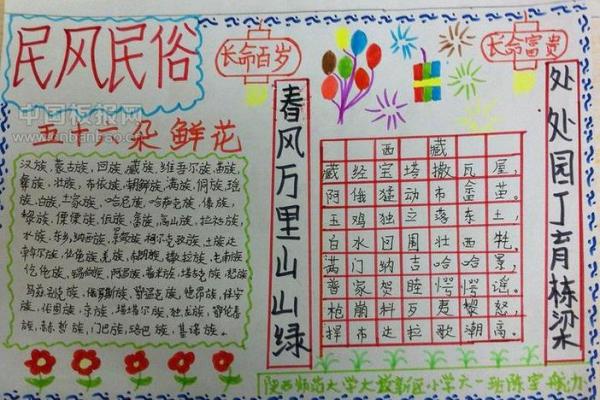 民风民俗
中国板报网
www.nbanbao.cn
朵鲜花
汉族、蒙古族、回族、藏族、维吾尔族、苗族、
彝族、壮族、布依族、朝鲜族、满族、侗族、瑶
族、白族、土家族、哈尼族、哈萨克族、傣族、
黎族、傈僳族、佤族、畲族、高山族、拉祜族、
水族、东乡、纳西族、景颇族、柯尔克孜族、土族、达
斡尔族、仫佬族、羌族、布朗族、撒拉族、毛南族、
仡佬族、锡伯族、阿昌族、普米族、塔吉克族、怒族、
乌兹别克族、俄罗斯族、鄂温克族、德昂族、保安
族、裕固族、京族、塔塔尔族、独龙族、鄂伦春
族、赫哲族、门巴族、珞巴族、基诺族。
长命百岁
长命富贵
春风万里山山绿
西藏
藏经宝塔撒瓦屋,
阿俄猛动布畲苗。
玉鸡独立落东土,
白水回围壮西牦。
满门纳吉哈哈景,
普家贺
枪崩料歹夷黎怒,
择布达拉歌潮高。
处处园丁育栋梁
陕西师范大学大兴新区小学六一班陈